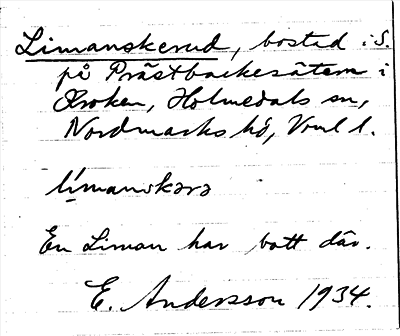 Limanskerud, bostad i S.
på Prästbackesätern i
Kroken, Holmedals sn,
Nordmarks hd, Vrml l.
límanskərə
En Liman har bott där.
E. Andersson 1934.